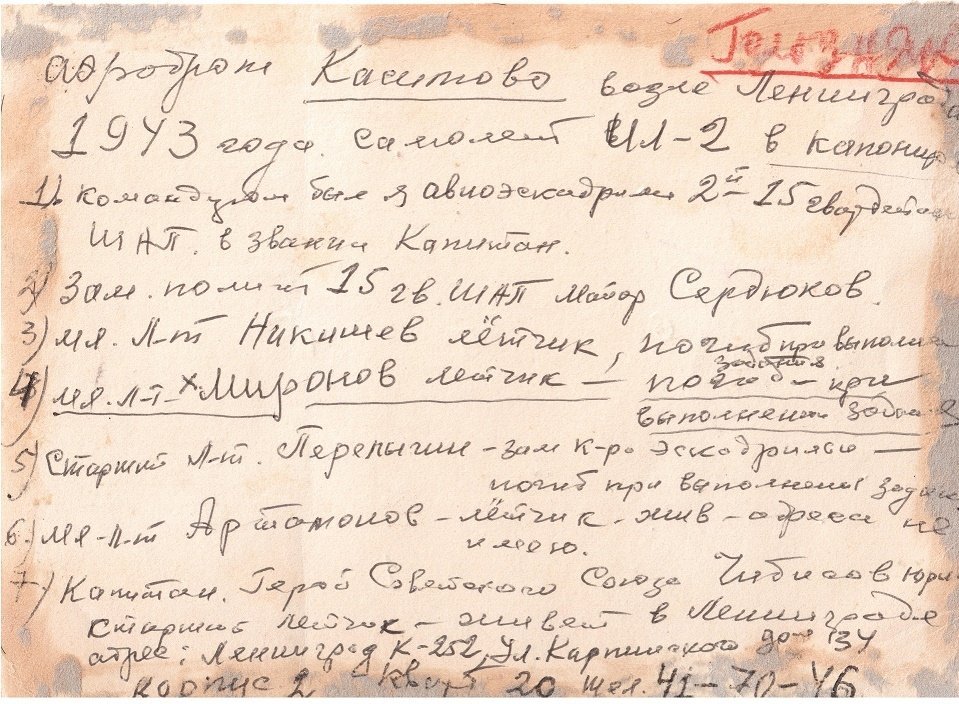 аэродром Касимово возле Ленинграда
1943 года. самолет ИЛ-2 в капонире
1). командиром был я авиоэскадрили 2й - 15 гвардейский
ШАП. в звании Капитан.
2) Зам. полит 15 гв. ШАП майор Сердюков.
3) мл. Л-т Никишев лётчик, погиб при выполнен
задания
4) мл. л-т х Миронов летчик — погиб - при
выполнении задания
5) Старший Л-т. Перепычин - зам к-ра эскадрильи —
погиб при выполнении задан
6.) мл-л-т Артамонов - лётчик - жив - адреса не
имею.
7) Капитан. Герой Советского Союза Чибисов юри
старший летчик - живет в Ленинграде
адрес: Ленинград К-252, Ул. Карпинского дом 34
корпус 2 Кварт 20 тел. 41-70-46